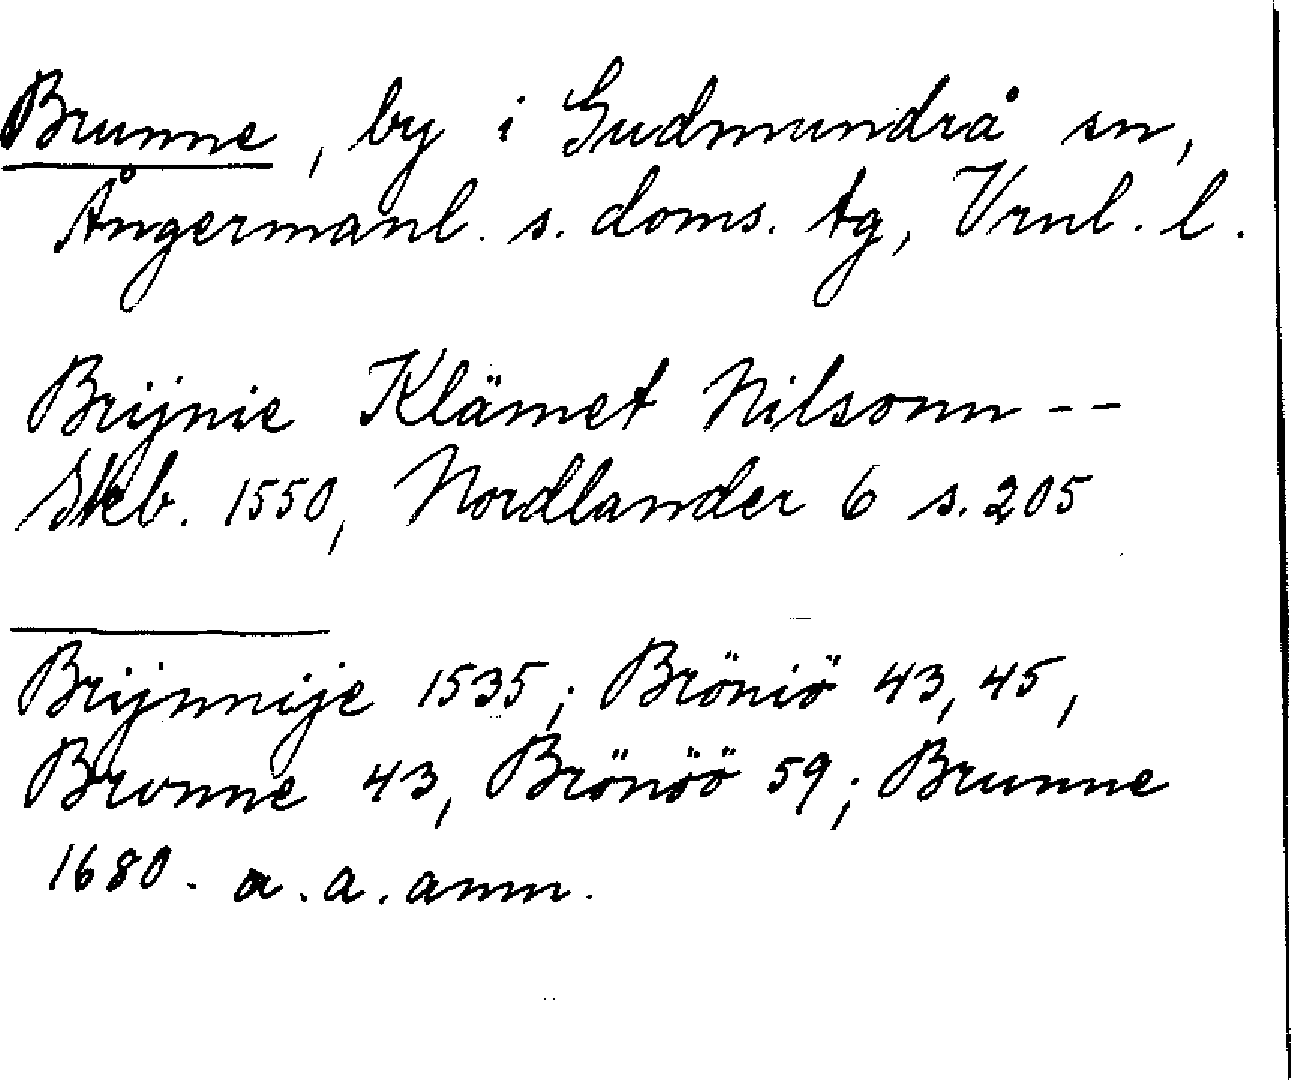 Brunne, by i Gudmundrå sn,
Ångermanl. s. doms. tg, Vrnl. l.
Brijnie Klämet Nilsonn --
Skb. 1550, Nordlander 6 s. 205
Brijnnije 1535; Bröniö 43, 45,
Bronne 43, Brönöö 59; Brunne
1680. a. a. anm.